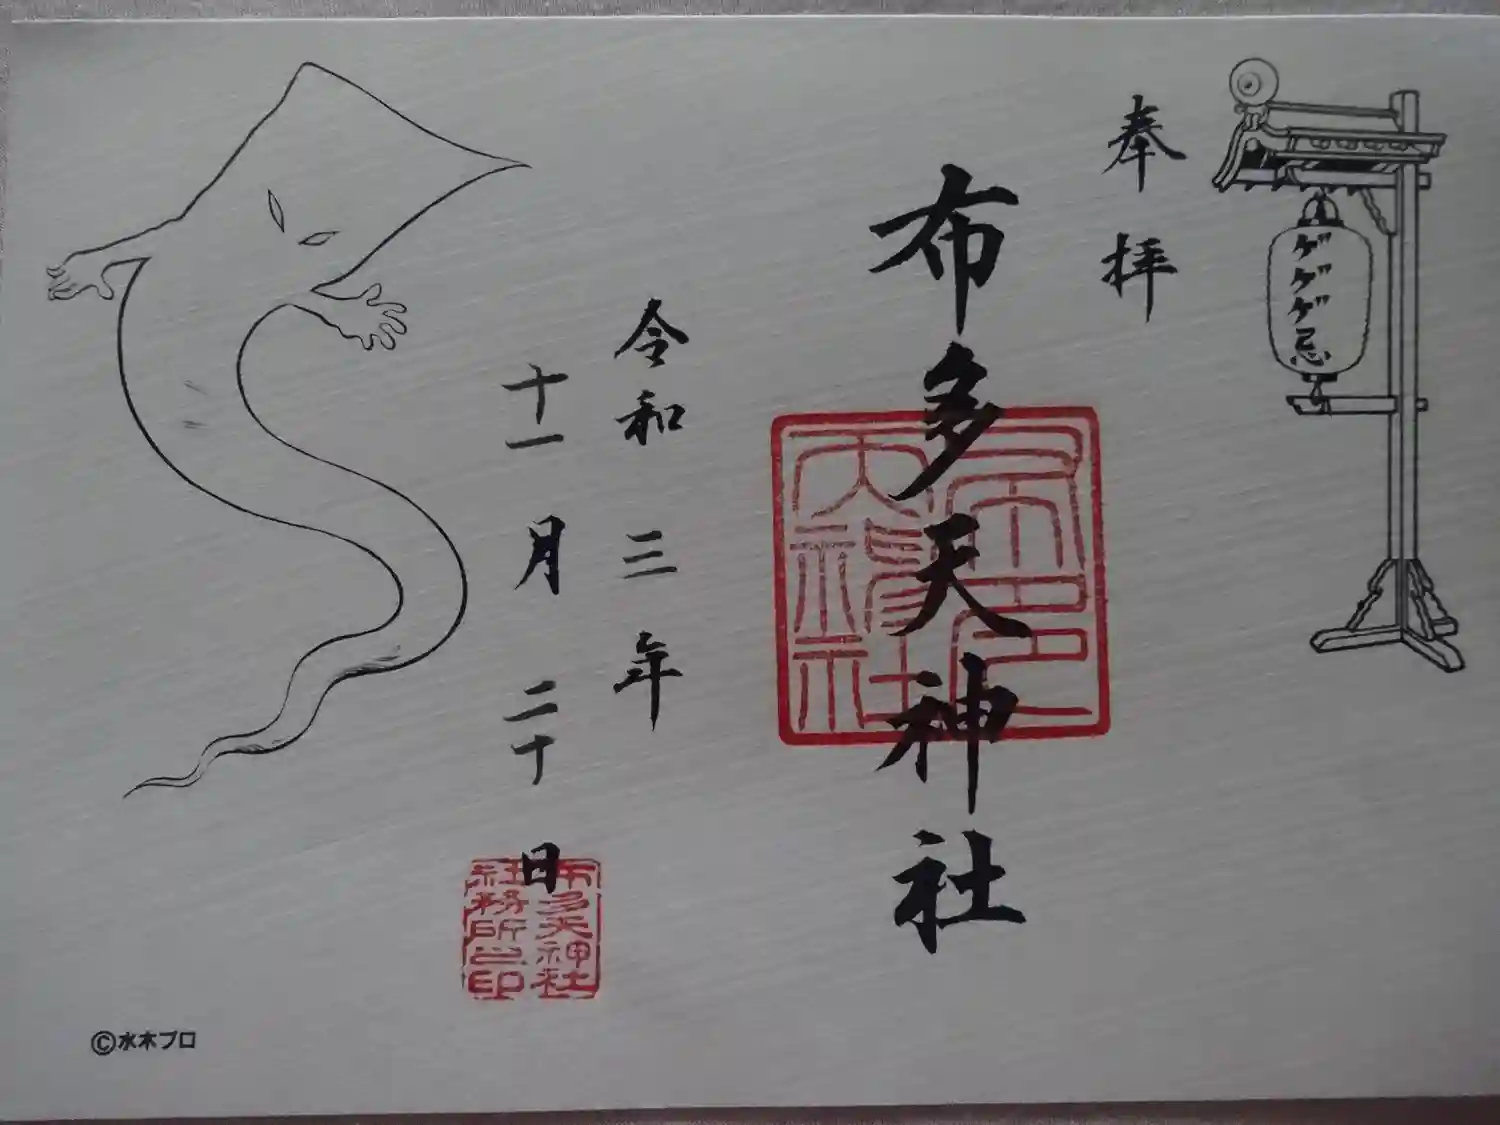 奉拝
ゲゲゲ忌
布多天神社
令和三年
十一月二十日
布多天神社
社務所之印
©水木プロ